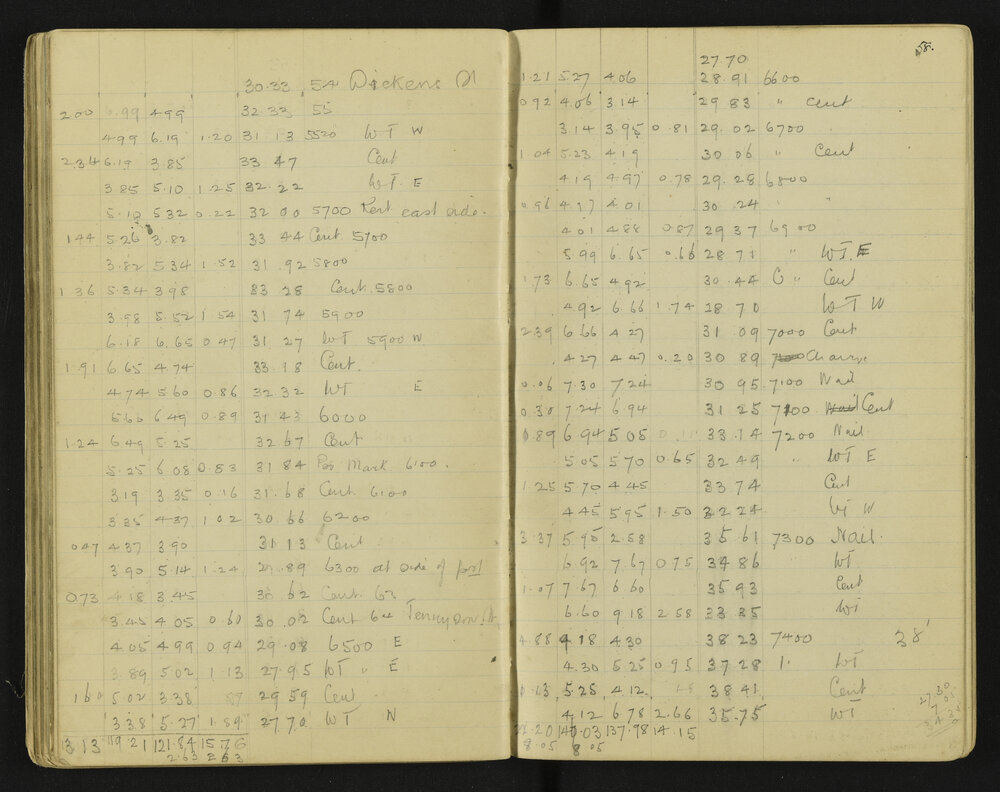 30.33 54 Dickens St
2.00 6.99 4.99 32 33 55
4.99 6.19 1.20 31 13 5520 WT W
2.34 6.19 3.85 33 47 Cent
3.85 5.10 1.25 32.22 WT. E
5.10 5.32 0.22 32 00 5700 Kerb east side.
1.44 5.26 3.82 33 44 Cent. 5700
3.82 5.34 1.52 31.92 5800
1.36 5.34 3.98 33 28 Cent. 5800
3.98 5.52 1.54 31 74 5900
6.18 6.65 0.47 31 27 WT 5900 W
1.91 6.65 4.74 33.18 Cent.
4.74 5.60 0.86 32.32 WT E
5.60 6.49 0.89 31 43 6000
1.24 6.49 5.25 32 67 Cent
5.25 6.08 0.83 31 84 Peg Mark 6100.
3.19 3.35 0.16 31.68 Cent. 6100
3.35 4.37 1.02 30.66 6200
0.47 4.37 3.90 31 13 Cent
3.90 5.14 1.24 29.89 6300 at side of post
0.73 4.18 3.45 30 62 Cent. 63
3.45 4.05 0.60 30.02 Cent 64 Tennyson St
4.05 4.99 0.94 29.08 6500 E
3.89 5.02 1.13 27.95 WT " E
1.60 5.02 3.38 29 59 Cent
3.38 5.27 1.89 27.70 WT N
3.13 119.21 121.84 15.76
2.63 2.63
58.
27.70
1.21 5.27 4.06 28.91 6600
0.92 4.06 3.14 29 83 " Cent
3.14 3.95 0.81 29.02 6700
1.04 5.23 4.19 30.06 " Cent
4.19 4.97 0.78 29.28 6800
0.96 4.97 4.01 30.24 "
4.01 4.88 0.87 29 37 6900
5.99 6.65 0.66 28 71 " WT. E
1.73 6.65 4.92 30.44 C " Cent
4.92 6.66 1.74 28 70 WT W
2.39 6.66 4.27 31 09 7000 Cent
4.27 4.47 0.20 30 89 Change
0.06 7.30 7.24 30 95 7100 Nail
0.30 7.24 6.94 31 25 7100 Nail Cent
1.89 6.94 5.05 33.14 7200 Nail.
5.05 5.70 0.65 32 49 " WT E
1.25 5.70 4.45 33 74 Cent
4.45 5.95 1.50 32 24 WT W
3.37 5.95 2.58 35 61 7300 Nail.
6.92 7.67 0.75 34 86 WT
1.07 7.67 6.60 35 93 Cent
6.60 9.18 2.58 33 35 WT
4.88 9.18 4.30 38 23 7400 38'
4.30 5.25 0.95 37 28 1. WT
1.13 5.25 4.12 38 41 Cent
4.12 6.78 2.66 35.75 WT
22.20 140.03 137.98 14.15
8.05 8.05
27.30
7.05